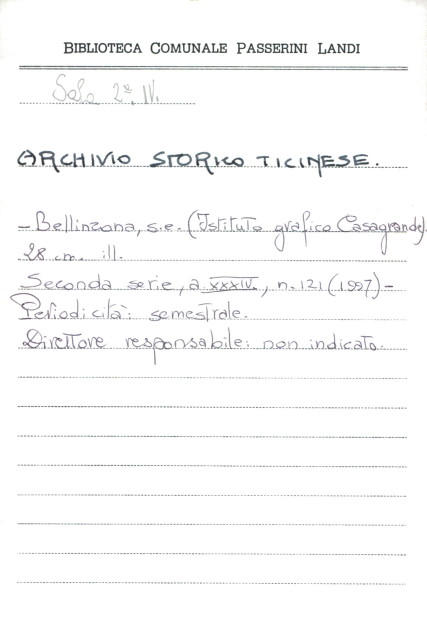 BIBLIOTECA COMUNALE PASSERINI LANDI
Sala 2ª. IV.
ARCHIVIO STORICO TICINESE.
- Bellinzona, s.e. (Istituto grafico Casagrande).
28 cm. ill.
Seconda serie, a. XXXIV., n. 121 (1997) -
Periodicità: semestrale.
Direttore responsabile: non indicato.